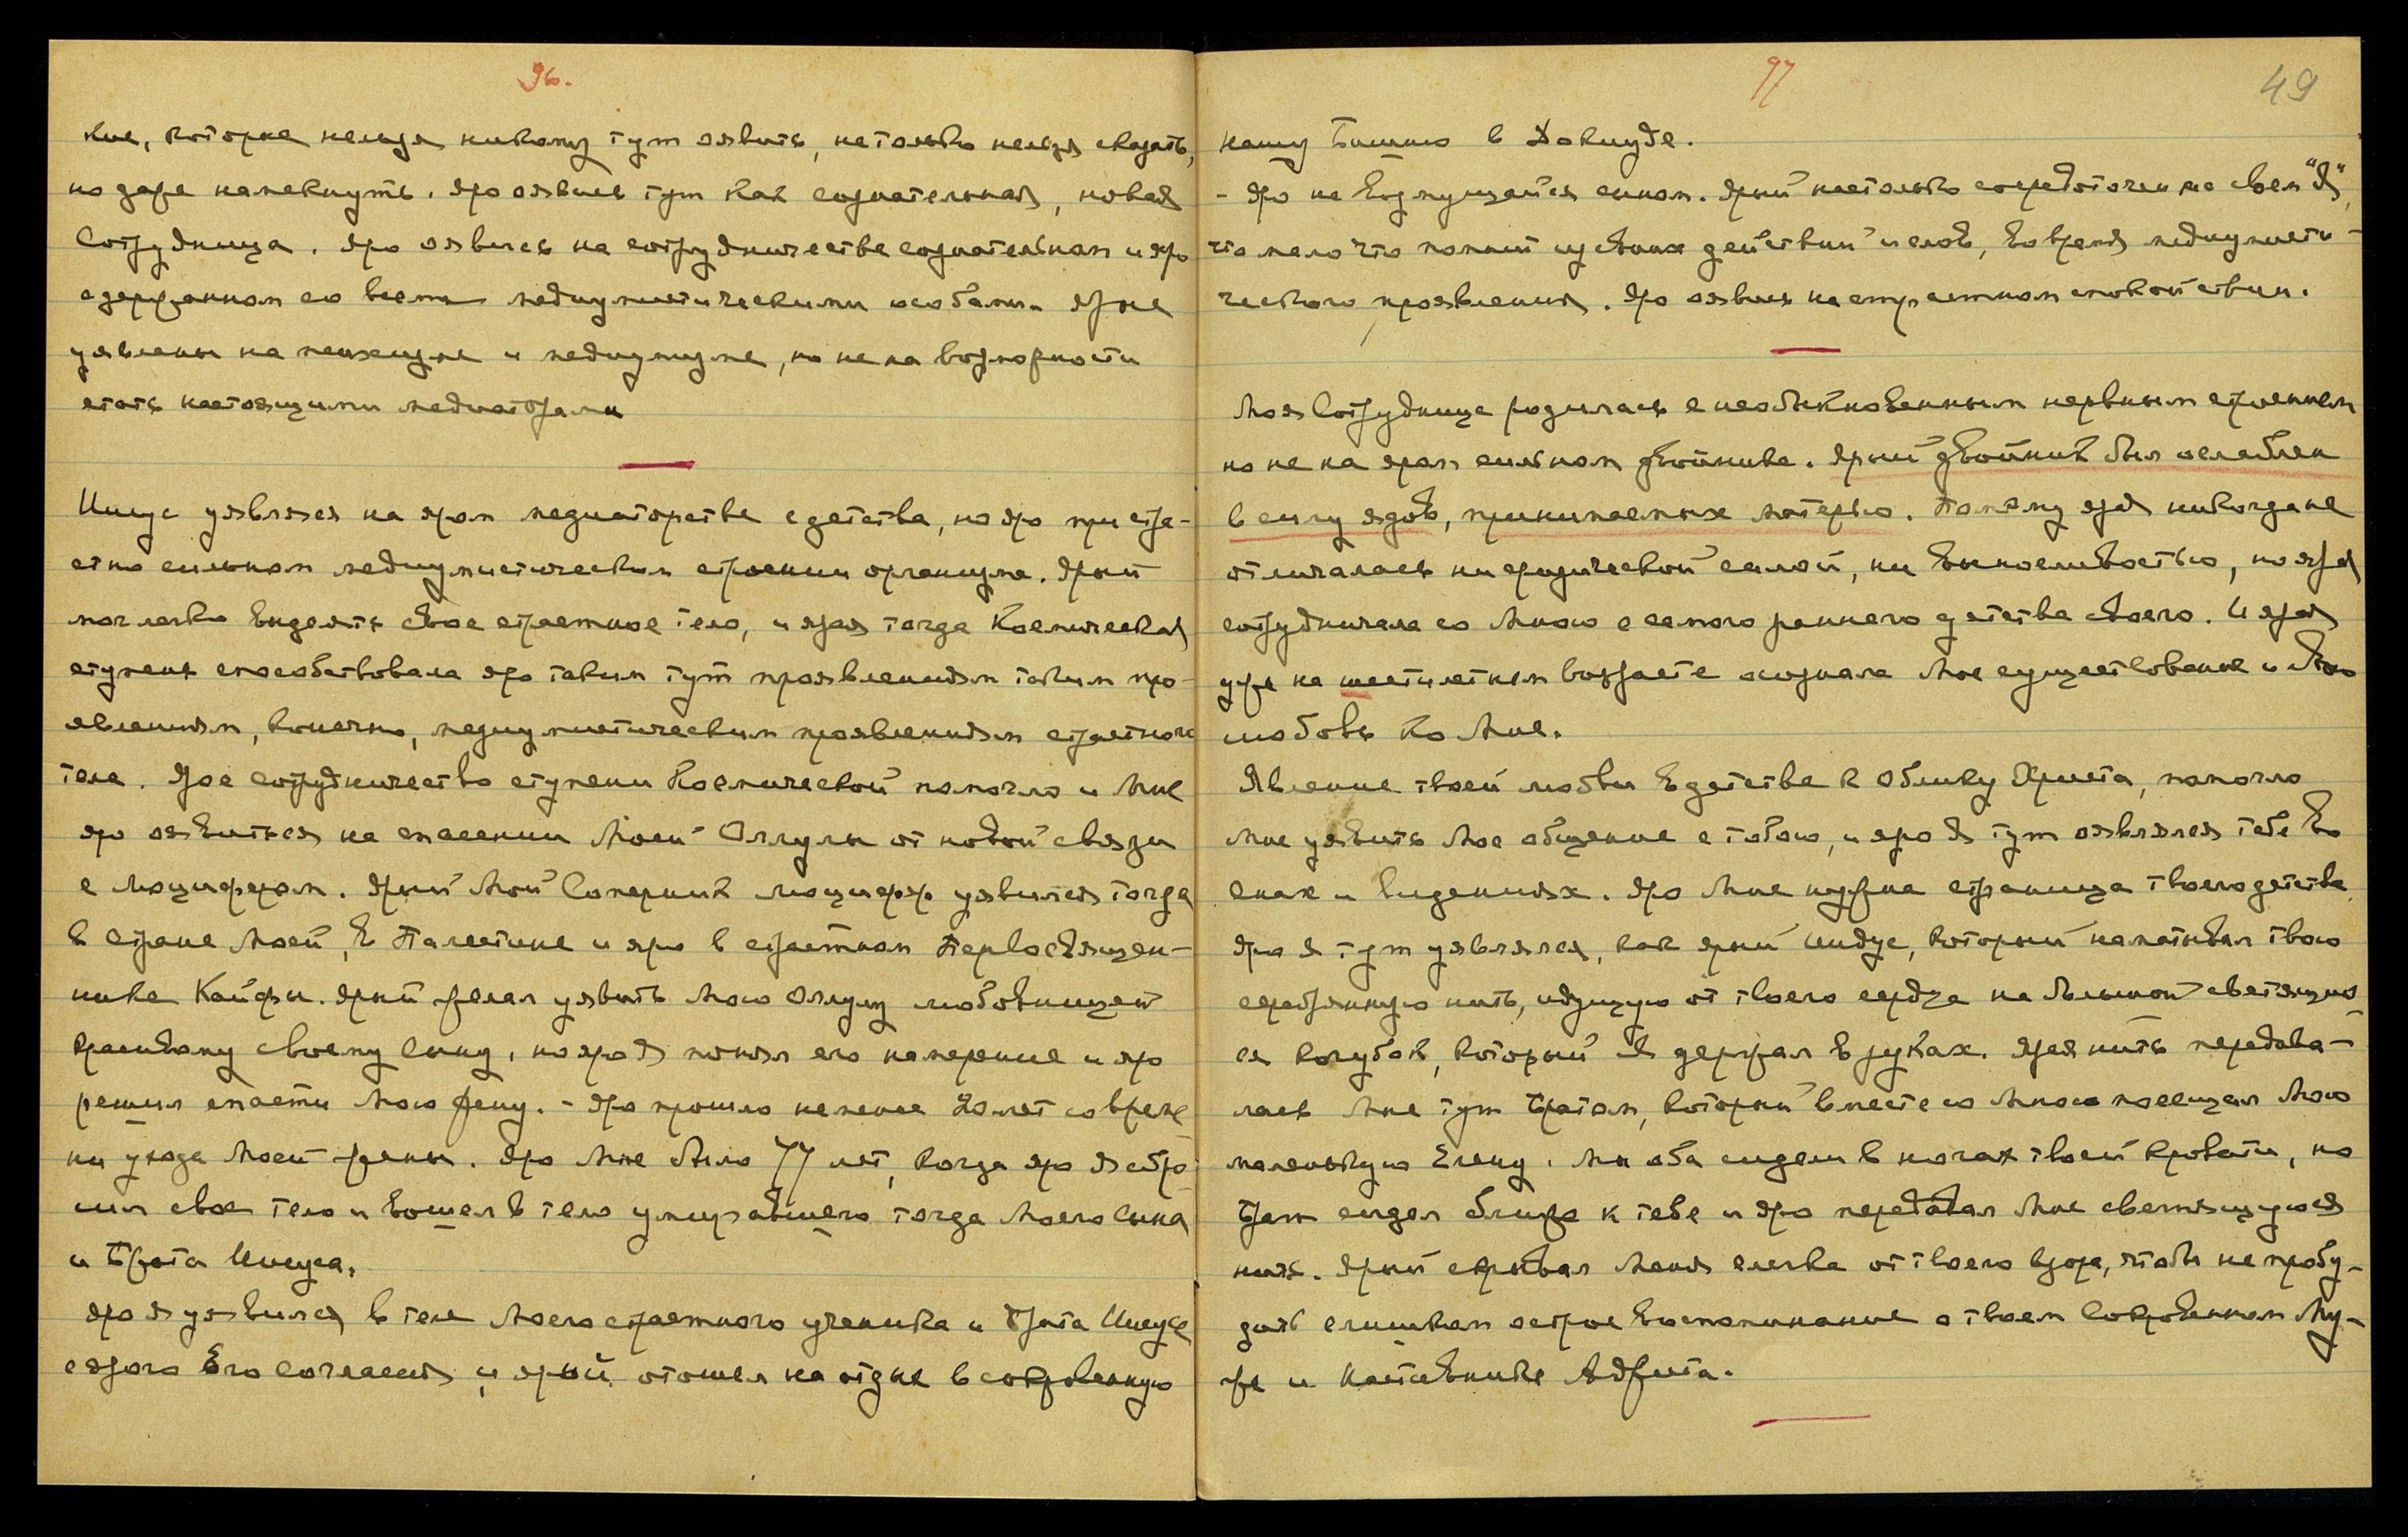 96.
ние, которые нельзя никому тут оявить, не только нельзя сказать,
но даже намекнуть. Яро оявись тут как сознательная, новая
Сотрудница. Яро оявись на сотрудничестве сознательном и яро
сдержанном со всеми медиумистическими особами. Ярые
уявлены на психизме и медиумизме, но не на возможности
стать настоящими медиаторами
Иисус уявлялся на яром медиаторстве с детства, но яро при стра-
стно сильном медиумистическом строении организма. Ярый
мог легко выделять свое страстное тело, и ярая тогда Космическая
ступень способствовала яро таким тут проявлениям таким про-
явлениям, конечно, медиумистическим проявлениям страстного
тела. Ярое сотрудничество ступени Космической помогло и Мне
яро оявиться на спасении Моей Оллулы от новой связи
с Люцифером. Ярый Мой Соперник Люцифер уявился тогда
в стране Моей, в Палестине и яро в страстном Первосвящен-
нике Кайфы. Ярый желал уявить Мою Оллулу любовницей
красивому своему сыну, но яро Я понял его намерение и яро
решил спасти Мою Жену. - Яро прошло не менее 20 лет со време
ни ухода Моей Жены. Яро Мне было 77 лет, когда яро Я сбро
сил свое тело и вошел в тело умиравшего тогда Моего Сына
и Брата Иисуса.
Яро Я уявился в теле Моего страстного ученика и Брата Иисуса
с ярого Его согласия и ярый отошел на отдых в сокровенную
97
49
нашу Башню в Докиуде.
- Яро не возмущайся сыном. Ярый настолько сосредоточен на своем "Я",
что мало что помнит из своих действий и слов, во время медиумисти-
ческого проявления. Яро оявись на страстном спокойствии.
Моя Сотрудница родилась с необыкновенным нервным строением
но не на яром сильном двойнике. Ярый двойник был ослаблен
в силу ядов, принимаемых матерью. Потому ярая никогда не
отличалась ни физической силой, ни выносливостью, но ярая
сотрудничала со Мною с самого раннего детства своего. И ярая
уже на шестилетнем возрасте осознала Мое существование и Мою
любовь ко Мне.
Явление твоей любви в детстве к Облику Христа, помогло
Мне уявить Мое общение с тобою, и яро Я тут оявлялся тебе во
снах и видениях. Яро Мне нужна страница твоего детства
Яро Я тут уявлялся, как ярый Индус, который наматывал твою
серебряную нить, идущую от твоего сердца на большой светящий
ся клубок, который Я держал в руках. Ярая нить передава-
лась Мне тут Братом, который вместе со Мною посещал Мою
маленькую Елену. Мы оба сидели в ногах твоей кровати, но
Брат сидел ближе к тебе и яро передавал Мне светящуюся
нить. Ярый скрывал Меня слегка от твоего взора, чтобы не пробу-
дить слишком острое воспоминание о твоем Сокровенном Му-
же и Наставнике Адриста.